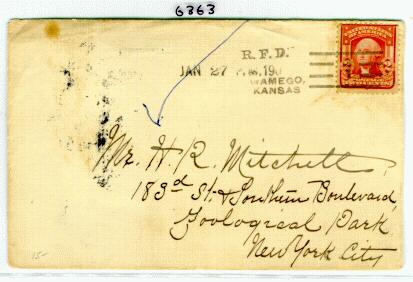 6363
R.F.D.
JAN 27 190
WAMEGO,
KANSAS
Mr. H. R. Mitchell,
183rd St. & Southern Boulevard,
Zoological Park
New York City
15-